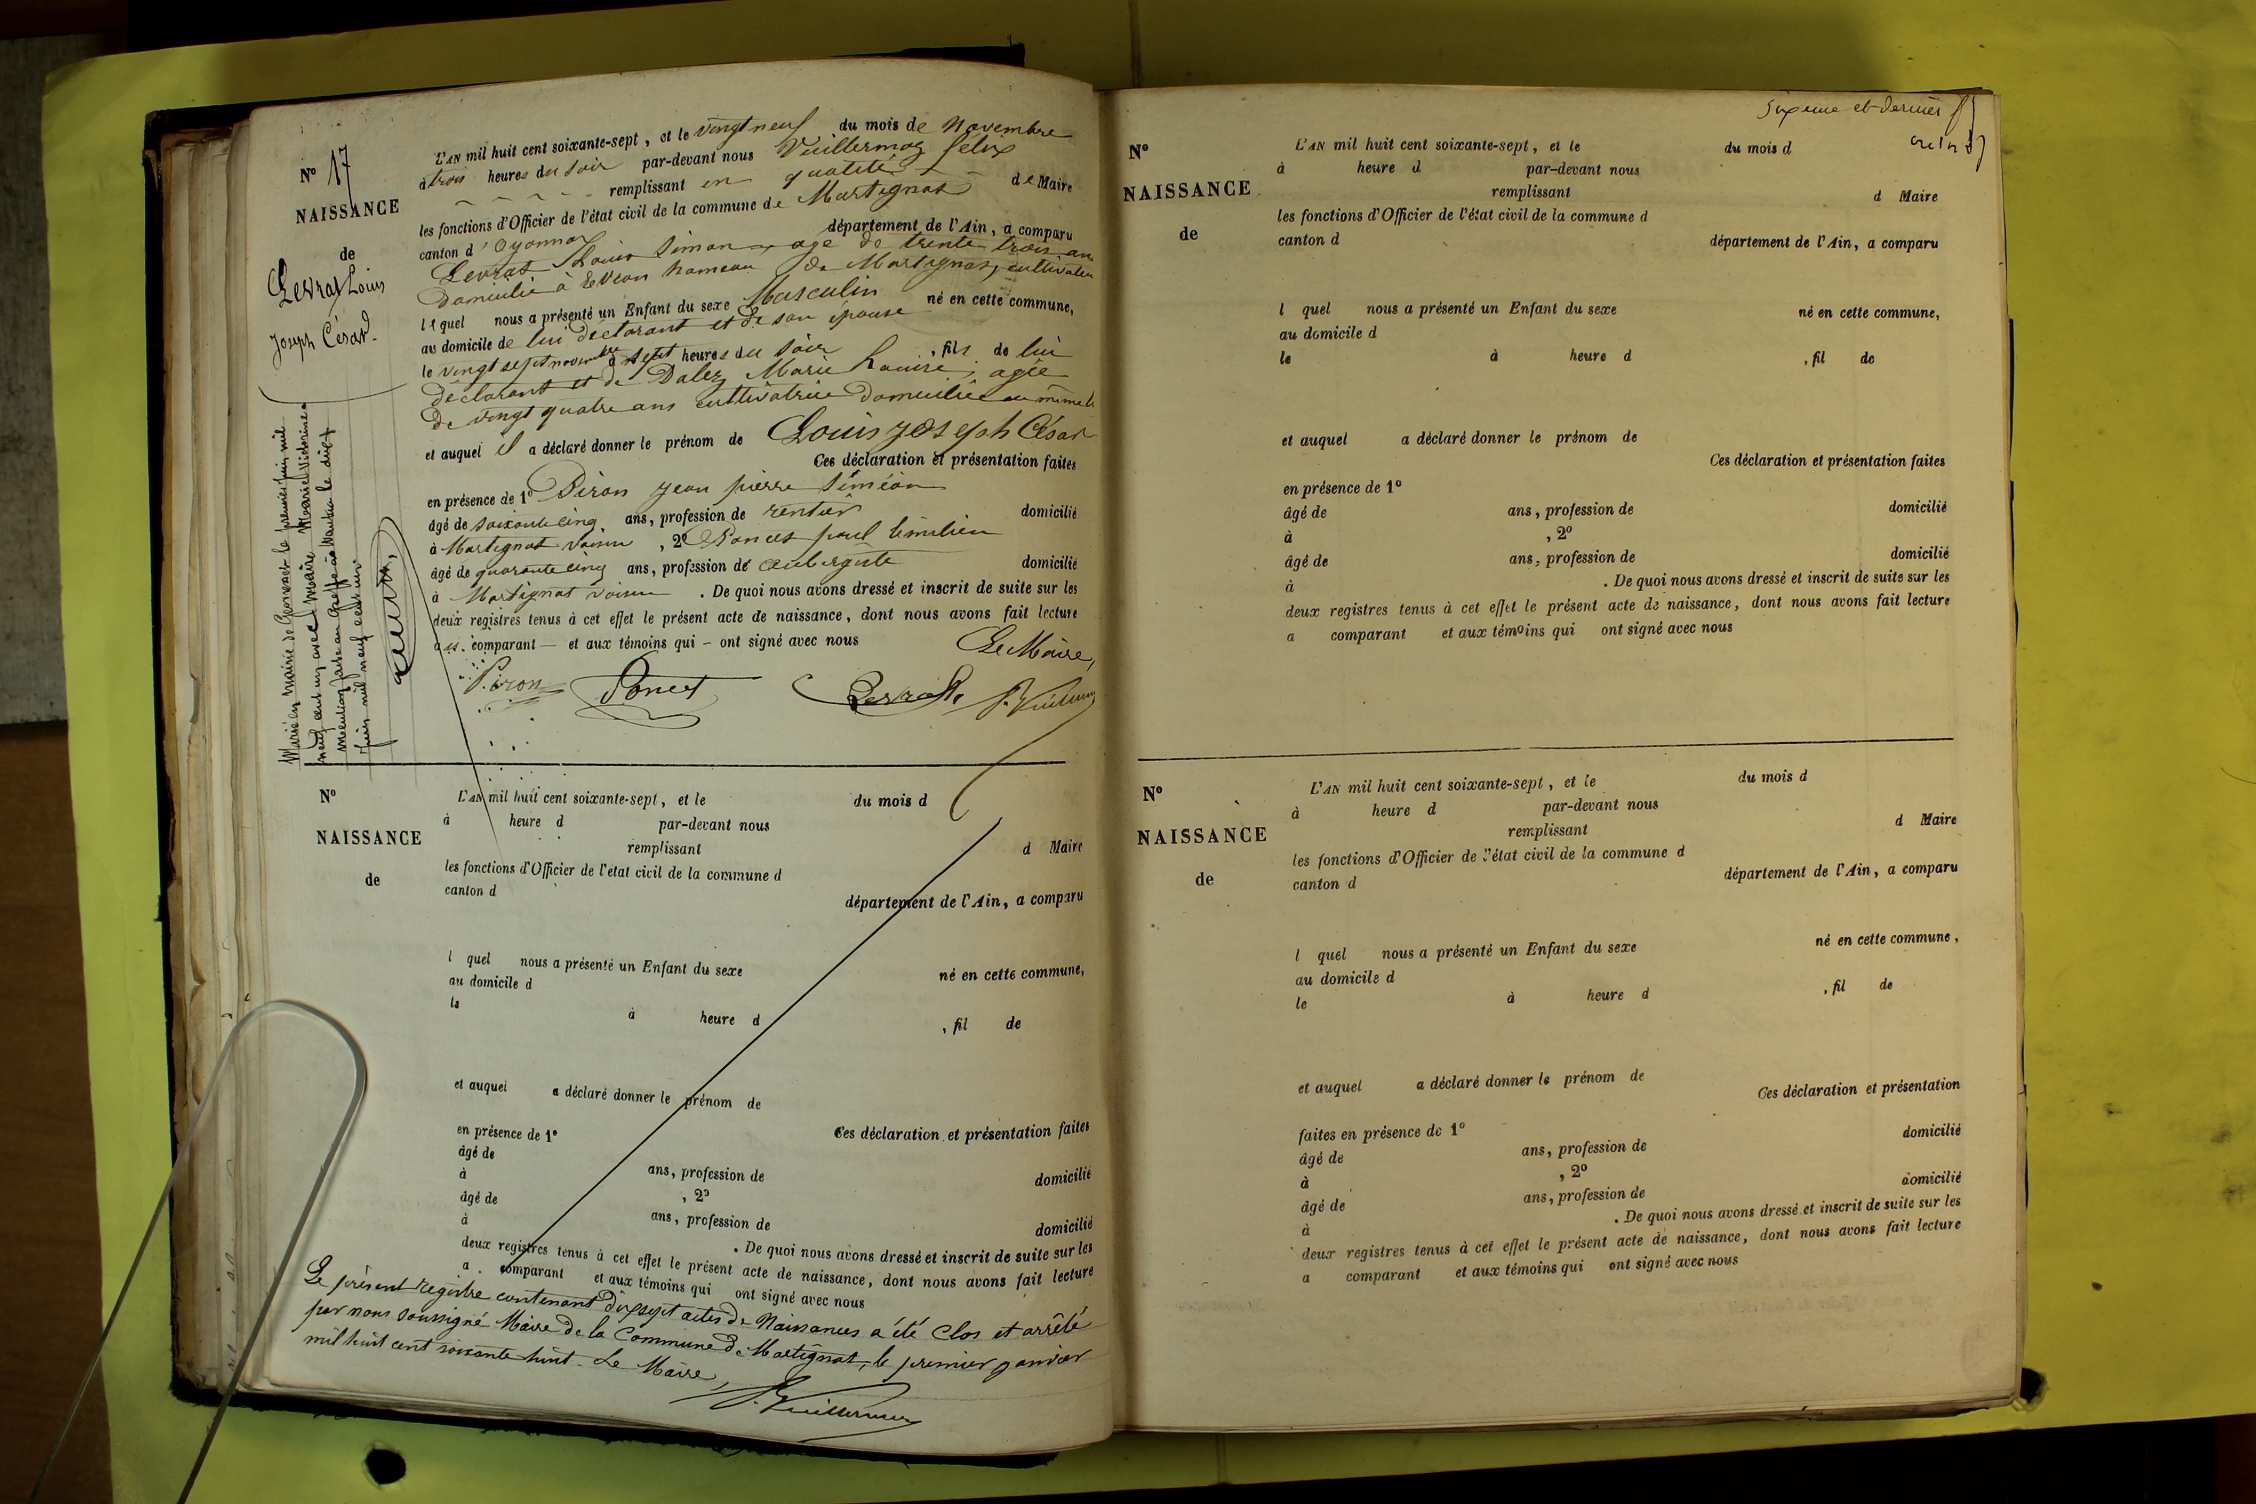 N° 17
NAISSANCE
de
Levrat Louis
Joseph César
Marié en mairie de le premier juin mil
neuf cent un avec Marie Victorine
Mention faite au Greffe à Nantua le dix
juin mil neuf cent un
L'AN mil huit cent soixante-sept, et le vingt neuf du mois de Novembre
à trois heures du soir par-devant nous Vuillermoz félix
remplissant en qualité de Maire
les fonctions d'Officier de l'état civil de la commune de Martignat
canton d'Oyonnax département de l'Ain, a comparu
Levrat Louis Simon age de trente trois an
Domicilié à hameau de Martignat, cultivateu
lequel nous a présenté un Enfant du sexe Masculin né en cette commune,
au domicile de lui déclarant et de son épouse
le vingt sept novembre à sept heures du soir, fils de lui
déclarant et de Marie Louise, agée
De vingt quatre ans cultivatrice Domiciliée au même
et auquel il a déclaré donner le prénom de Louis Joseph César
Ces déclaration et présentation faites
en présence de 1° Piron jean pierre Siméon
âgé de soixante cinq ans, profession de rentier domicilié
à Martignat voisin, 2° Poncet paul Emilien
âgé de quarante cinq ans, profession de aubergiste domicilié
à Martignat voisin. De quoi nous avons dressé et inscrit de suite sur les
deux registres tenus à cet effet le présent acte de naissance, dont nous avons fait lecture
au comparant — et aux témoins qui – ont signé avec nous
Le Maire,
Piron Poncet Levrat
N°
NAISSANCE
de
L'AN mil huit cent soixante-sept, et le du mois d
à heure d par-devant nous
remplissant d Maire
les fonctions d'Officier de l'état civil de la commune d
canton d département de l'Ain, a comparu
l quel nous a présenté un Enfant du sexe né en cette commune,
au domicile d
le à heure d, fil de
et auquel a déclaré donner le prénom de
Ces déclaration et présentation faites
en présence de 1°
âgé de ans, profession de domicilié
à, 2°
âgé de ans, profession de domicilié
à. De quoi nous avons dressé et inscrit de suite sur les
deux registres tenus à cet effet le présent acte de naissance, dont nous avons fait lecture
a comparant et aux témoins qui ont signé avec nous
Le présent registre contenant dix sept actes de Naissances a été clos et arrêté
par nous soussigné Maire de la Commune de Martignat, le premier janvier
mil huit cent soixante huit. Le Maire,
Sixieme et dernier
N°
NAISSANCE
de
L'AN mil huit cent soixante-sept, et le du mois d
à heure d par-devant nous
remplissant d Maire
les fonctions d'Officier de l'état civil de la commune d
canton d département de l'Ain, a comparu
l quel nous a présenté un Enfant du sexe né en cette commune,
au domicile d
le à heure d, fil de
et auquel a déclaré donner le prénom de
Ces déclaration et présentation faites
en présence de 1°
âgé de ans, profession de domicilié
à, 2°
âgé de ans, profession de domicilié
à. De quoi nous avons dressé et inscrit de suite sur les
deux registres tenus à cet effet le présent acte de naissance, dont nous avons fait lecture
a comparant et aux témoins qui ont signé avec nous
N°
NAISSANCE
de
L'AN mil huit cent soixante-sept, et le du mois d
à heure d par-devant nous
remplissant d Maire
les fonctions d'Officier de l'état civil de la commune d
canton d département de l'Ain, a comparu
l quel nous a présenté un Enfant du sexe né en cette commune,
au domicile d
le à heure d, fil de
et auquel a déclaré donner le prénom de
Ces déclaration et présentation
faites en présence de 1°
âgé de ans, profession de domicilié
à, 2°
âgé de ans, profession de domicilié
à. De quoi nous avons dressé et inscrit de suite sur les
deux registres tenus à cet effet le présent acte de naissance, dont nous avons fait lecture
a comparant et aux témoins qui ont signé avec nous